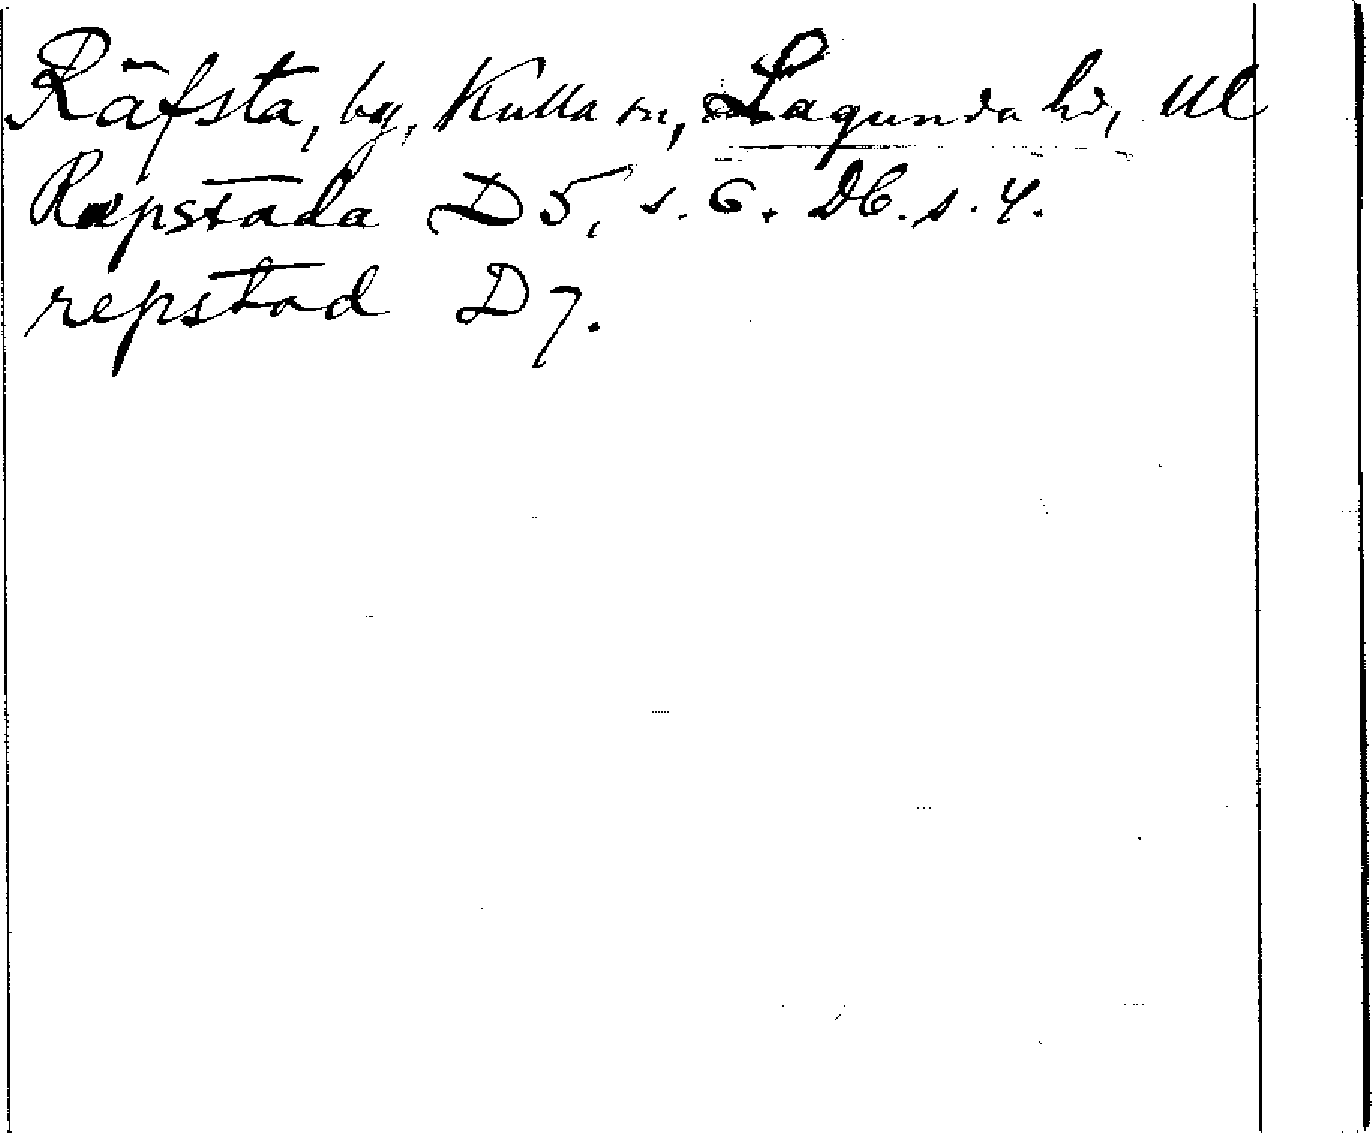 Räfsta, by, Kulla sn, Lagunda hd, Ul
Ræpstada D5, s. 6. D6. s. 4.
repstad D7.